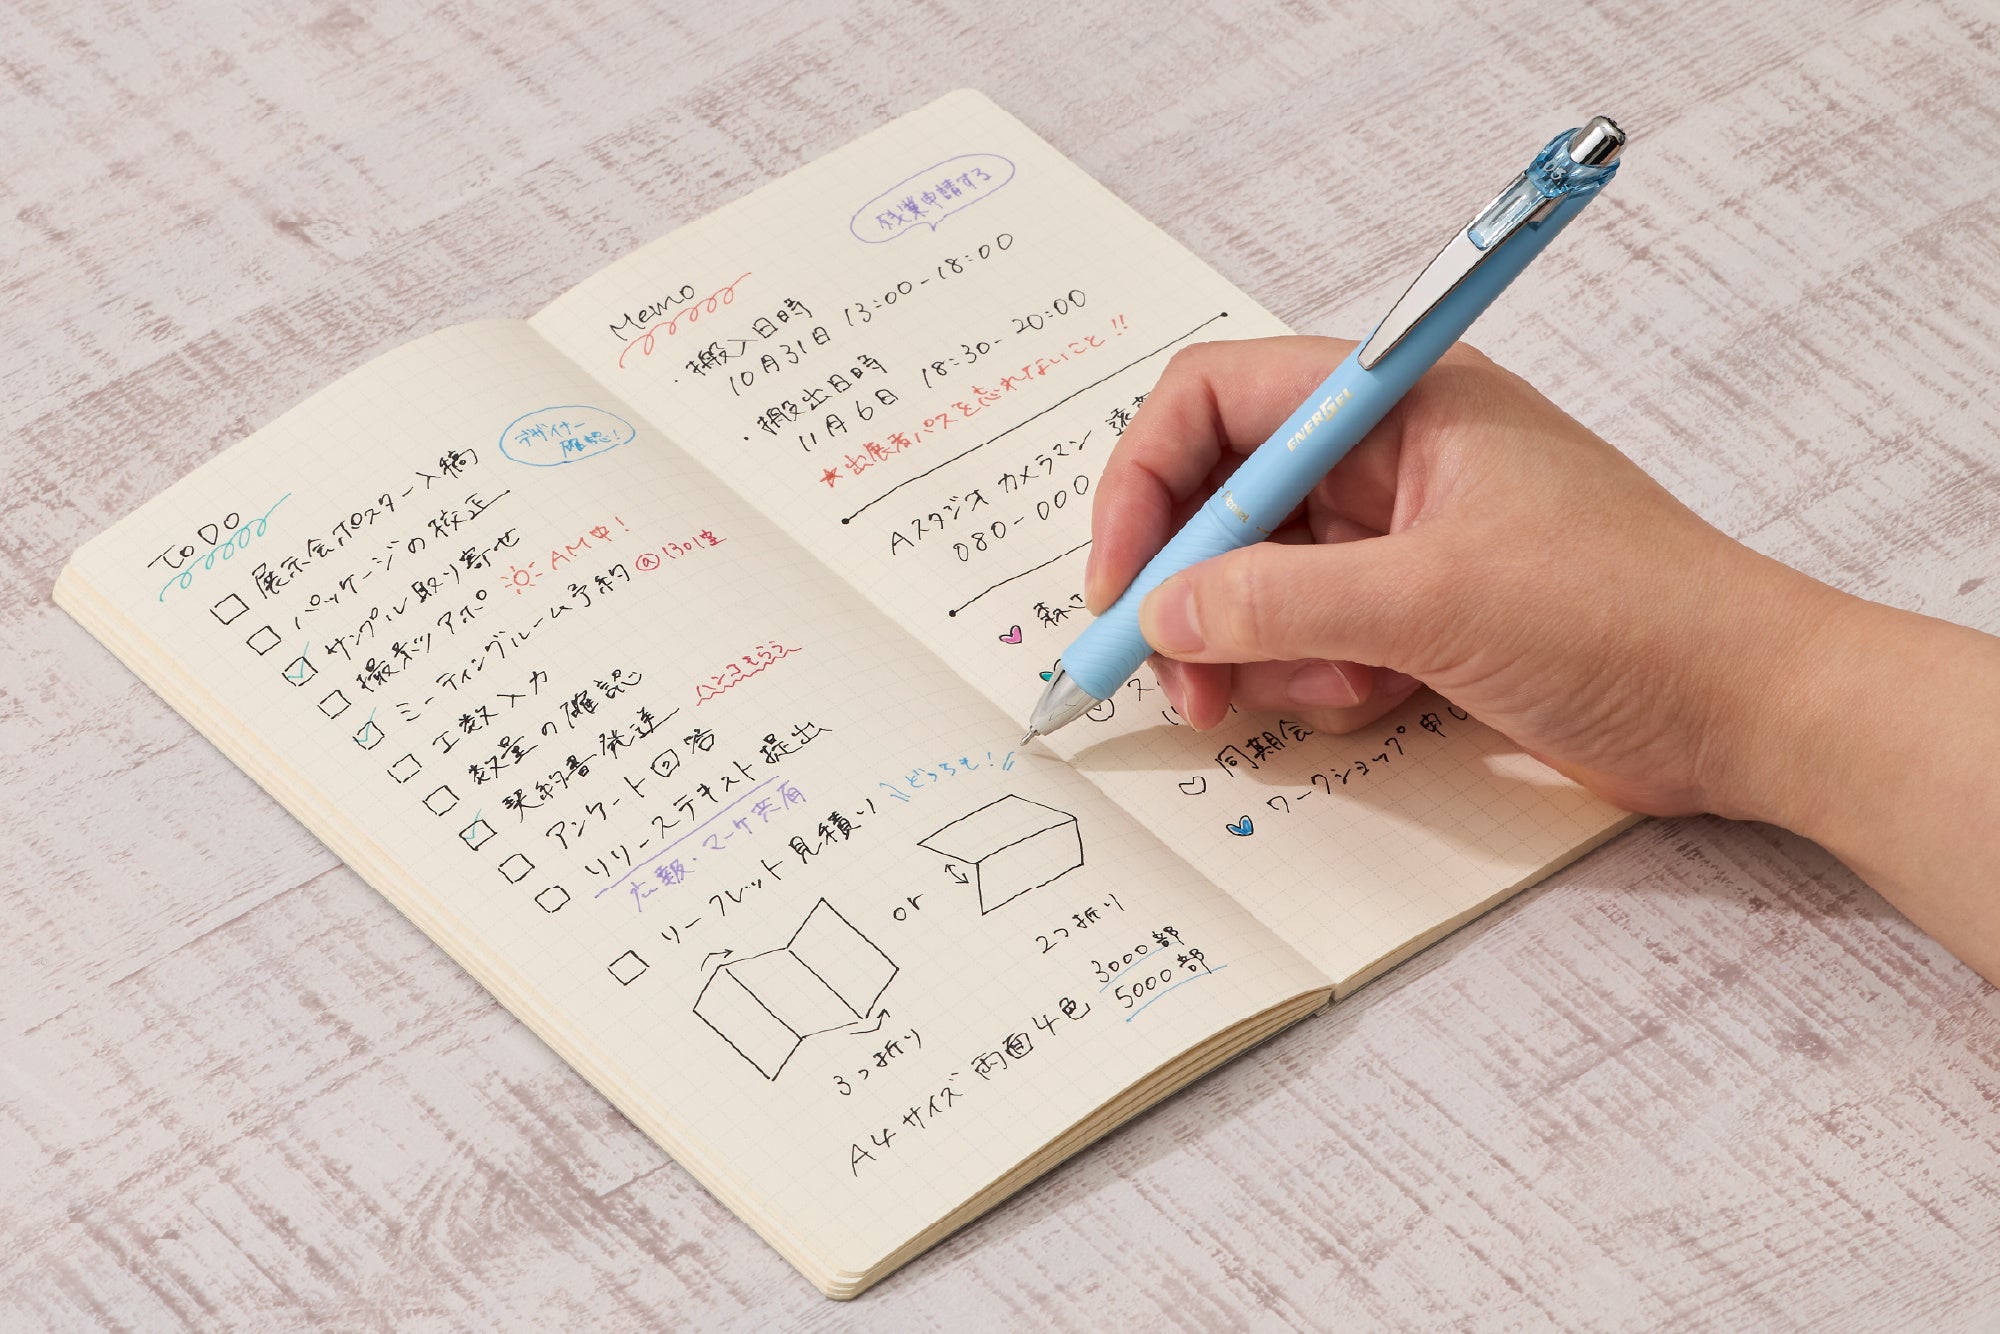 ToDo
展示会ポスター入稿
デザイナー
確認!
パッケージの校正
サンプル取り寄せ
撮影ツアポ
AM中!
ミーティングルーム予約
@1301室
工数入力
数量の確認
契約書発送
ハンコもらう
アンケート回答
リリーステキスト提出
広報・マーケ共有
リーフレット見積り
どっちも!
or
3つ折り
2つ折り
A4サイズ 両面4色
3000部
5000部
Memo
残業申請する
・搬入日時
10月31日 13:00-18:00
・搬出日時
11月6日 18:30-20:00
★出展者パスを忘れないこと!!
Aスタジオ カメラマン
080-000
森
ス
同期会
ワークショップ申し
ENERGEL
Pentel